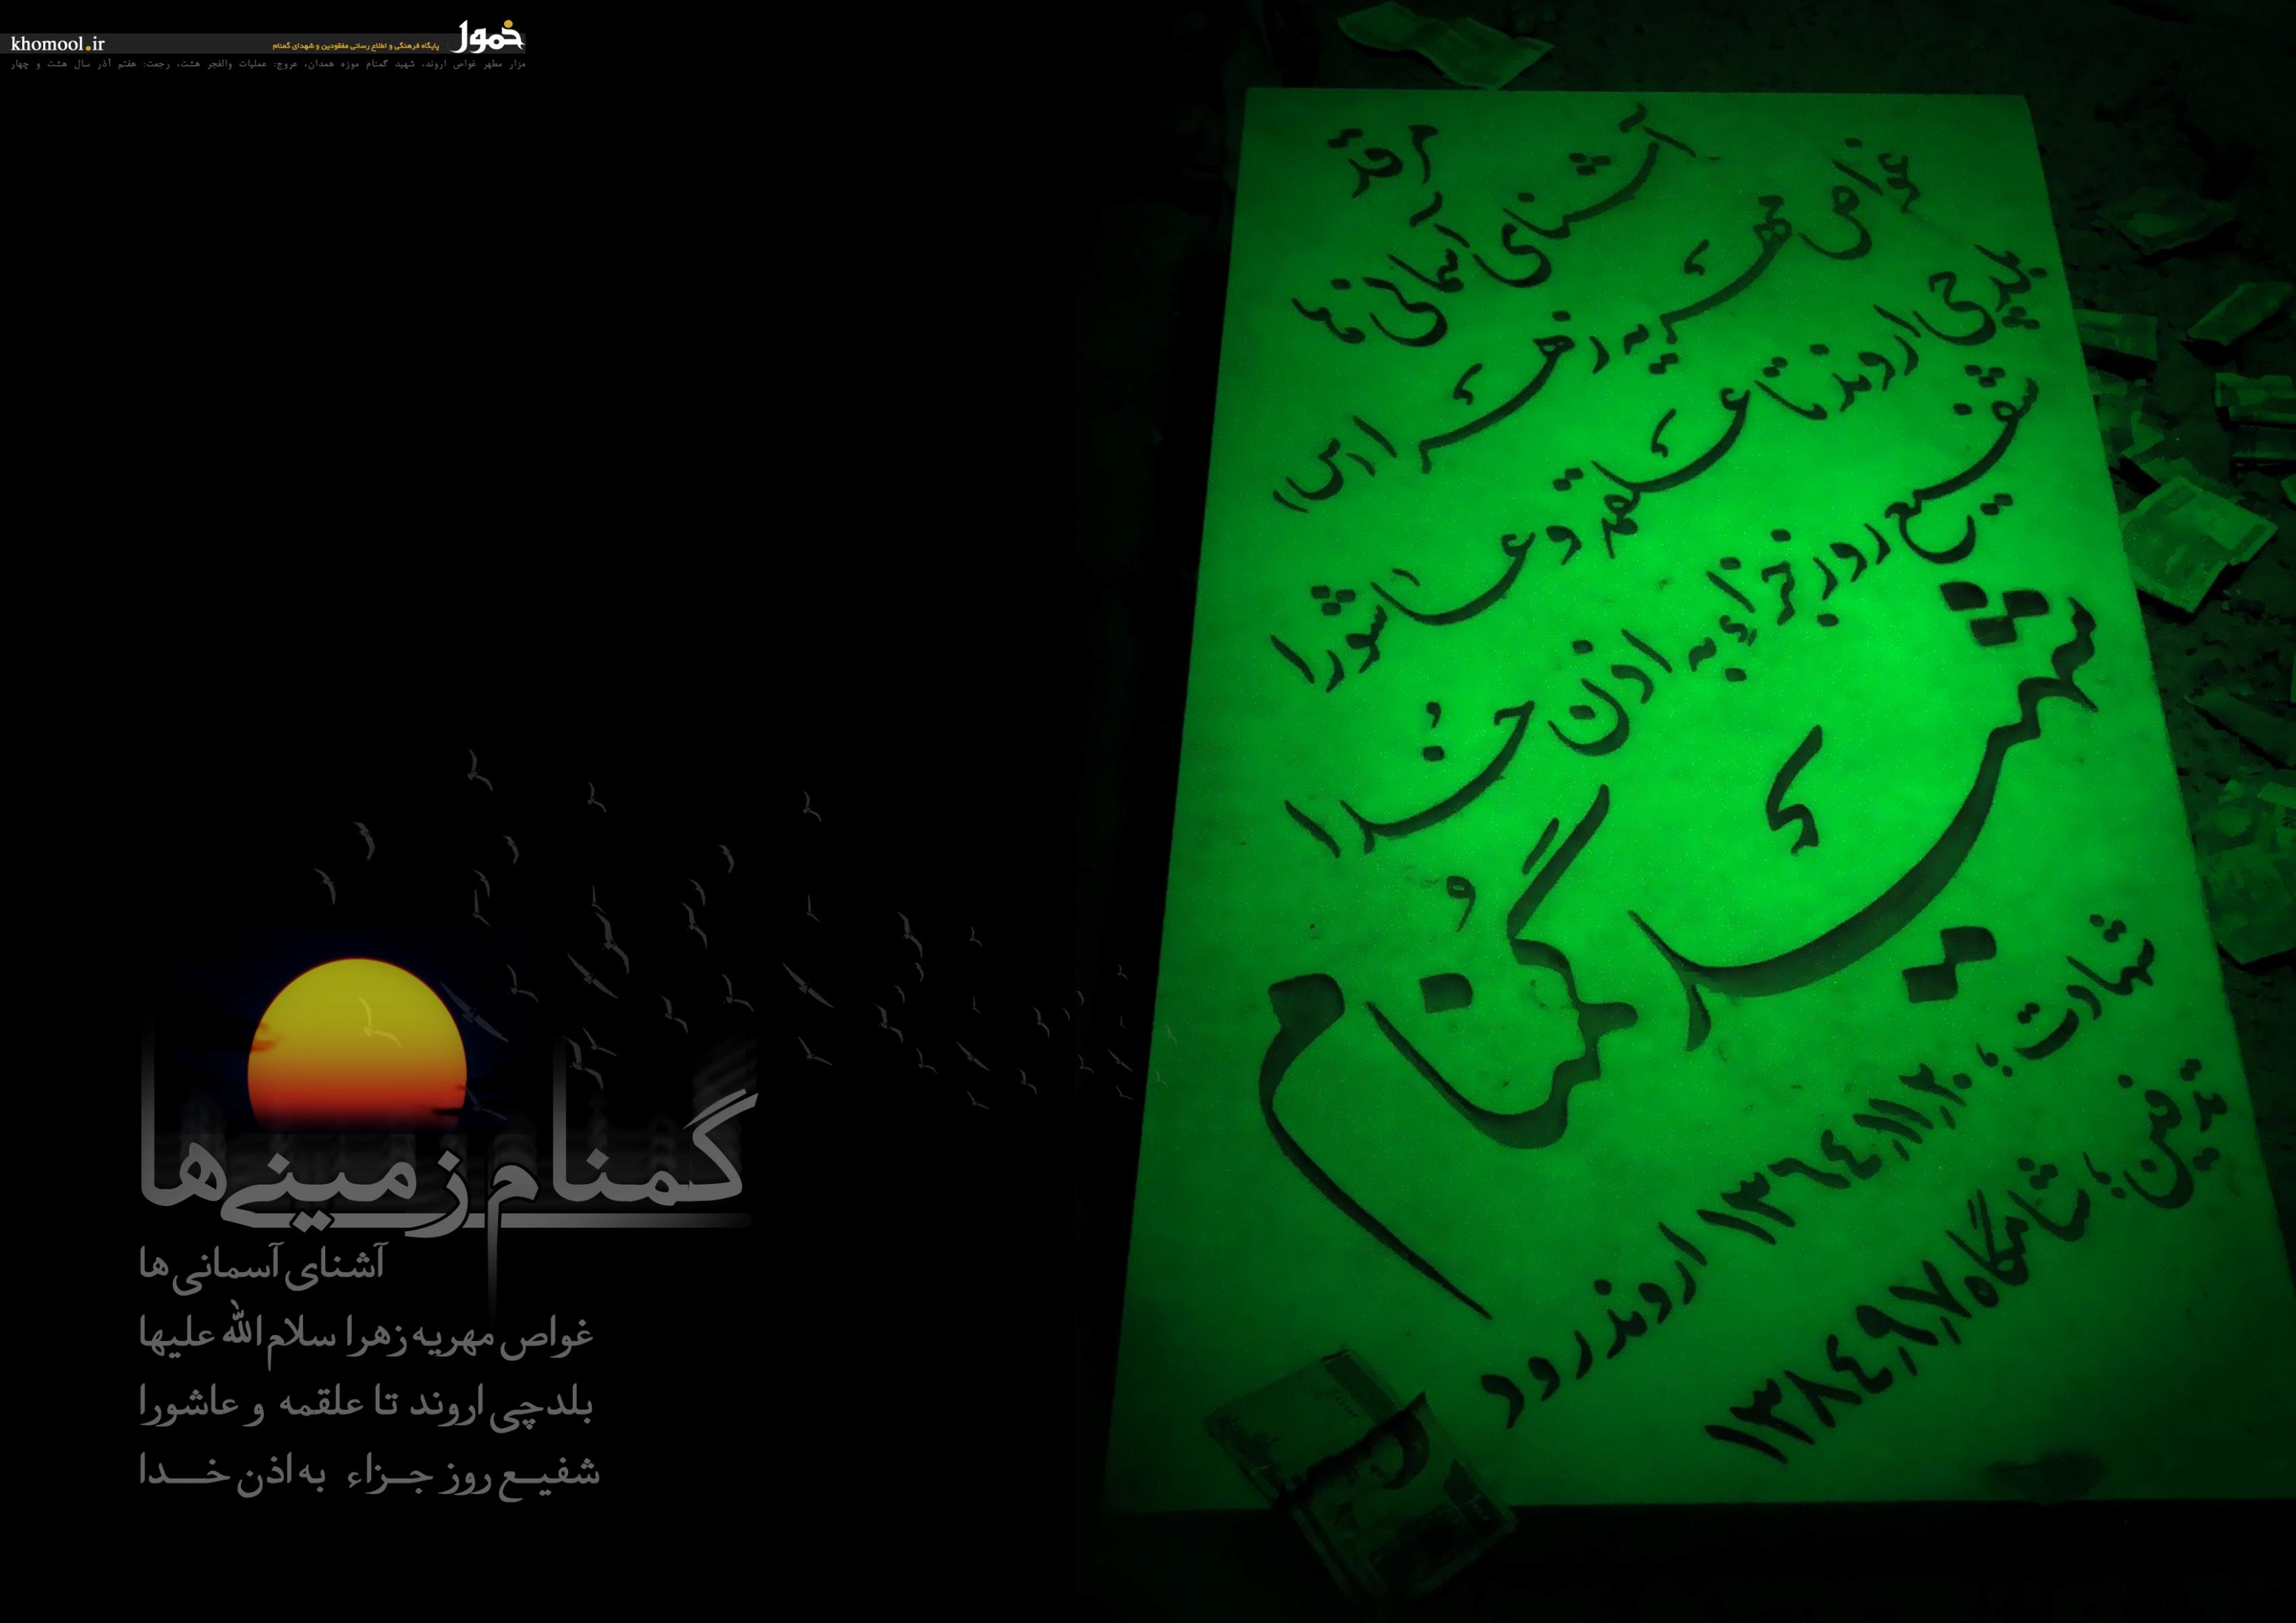 khomool.ir
خمول
پایگاه فرهنگی و اطلاع رسانی مفقودین و شهدای گمنام
مزار مطهر غواص اروند، شهید گمنام موزه همدان، عروج: عملیات والفجر هشت، رجعت: هفتم آذر سال هشت و چهار
گمنام زمینی‌ها
آشنای آسمانی‌ها
غواص مهریه زهرا سلام الله علیها
بلدچی اروند تا علقمه و عاشورا
شفیع روز جزاء به اذن خدا
مرقد
آشنای
غواص مهریه زهرا (س)
بلدچی اروند تا علقمه و عاشورا
شفیع روز جزاء به اذن خدا
شهید گمنام
شهادت: ۱۳۶۴،۱۱،۲۰ اروندرود
تدفین: شامگاه ۱۳۸۴،۹،۷